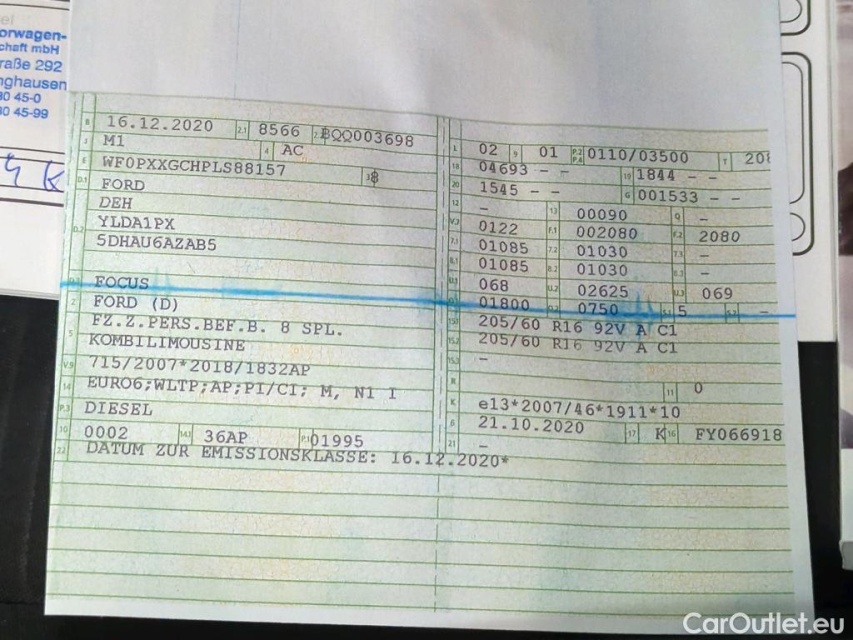 orwagen-
chaft mbH
raße 292
nghausen
80 45-0
80 45-99
B 16.12.2020 2.1 8566 BQQ003698
J M1 4 AC
E WF0PXXGCHPLS88157 3 8
D.1 FORD
DEH
D.2 YLDA1PX
5DHAU6AZAB5
D.3 FOCUS
2 FORD (D)
5 FZ.Z.PERS.BEF.B. 8 SPL.
KOMBILIMOUSINE
V.9 715/2007*2018/1832AP
14 EURO6;WLTP;AP;PI/CI; M, N1 I
P.3 DIESEL
10 0002 14.1 36AP P.1 01995
22 DATUM ZUR EMISSIONSKLASSE: 16.12.2020*
L 02 9 01 P.2 P.4 0110/03500 T 208
18 04693 - - 19 1844 - -
20 1545 - - G 001533 - -
12 - 13 00090 Q -
V.7 0122 F.1 002080 F.2 2080
7.1 01085 7.2 01030 7.3 -
8.1 01085 8.2 01030 8.3 -
U.1 068 U.2 02625 U.3 069
O.1 01800 O.2 0750 S.1 5 S.2 -
15.1 205/60 R16 92V A C1
15.2 205/60 R16 92V A C1
15.3 -
R 11 0
K e13*2007/46*1911*10
6 21.10.2020 17 K 16 FY066918
21 -
CarOutlet.eu